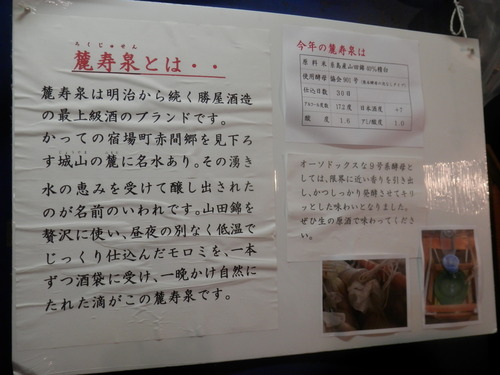 ろくじゅせん
麓寿泉とは・・
麓寿泉は明治から続く勝屋酒造
の最上級酒のブランドです。
かっての宿場町赤間郷を見下ろ
す城山の麓に名水あり。その湧き
水の恵みを受けて醸し出された
のが名前のいわれです。山田錦を
贅沢に使い、昼夜の別なく低温で
じっくり仕込んだモロミを、一本
ずつ酒袋に受け、一晩かけ自然に
たれた滴がこの麓寿泉です。
今年の麓寿泉は
原料米 糸島産山田錦 40%精白
使用酵母 協会901号
仕込日数 30日
アルコール度数 17.2度 日本酒度 +7
酸度 1.6 アミノ酸度 1.0
オーソドックスな９号系酵母と
しては、限界に近い香りを引き出
し、かつしっかり発酵させてキリ
ッとした味わいとなりました。
ぜひ生の原酒で味わってくださ
い。